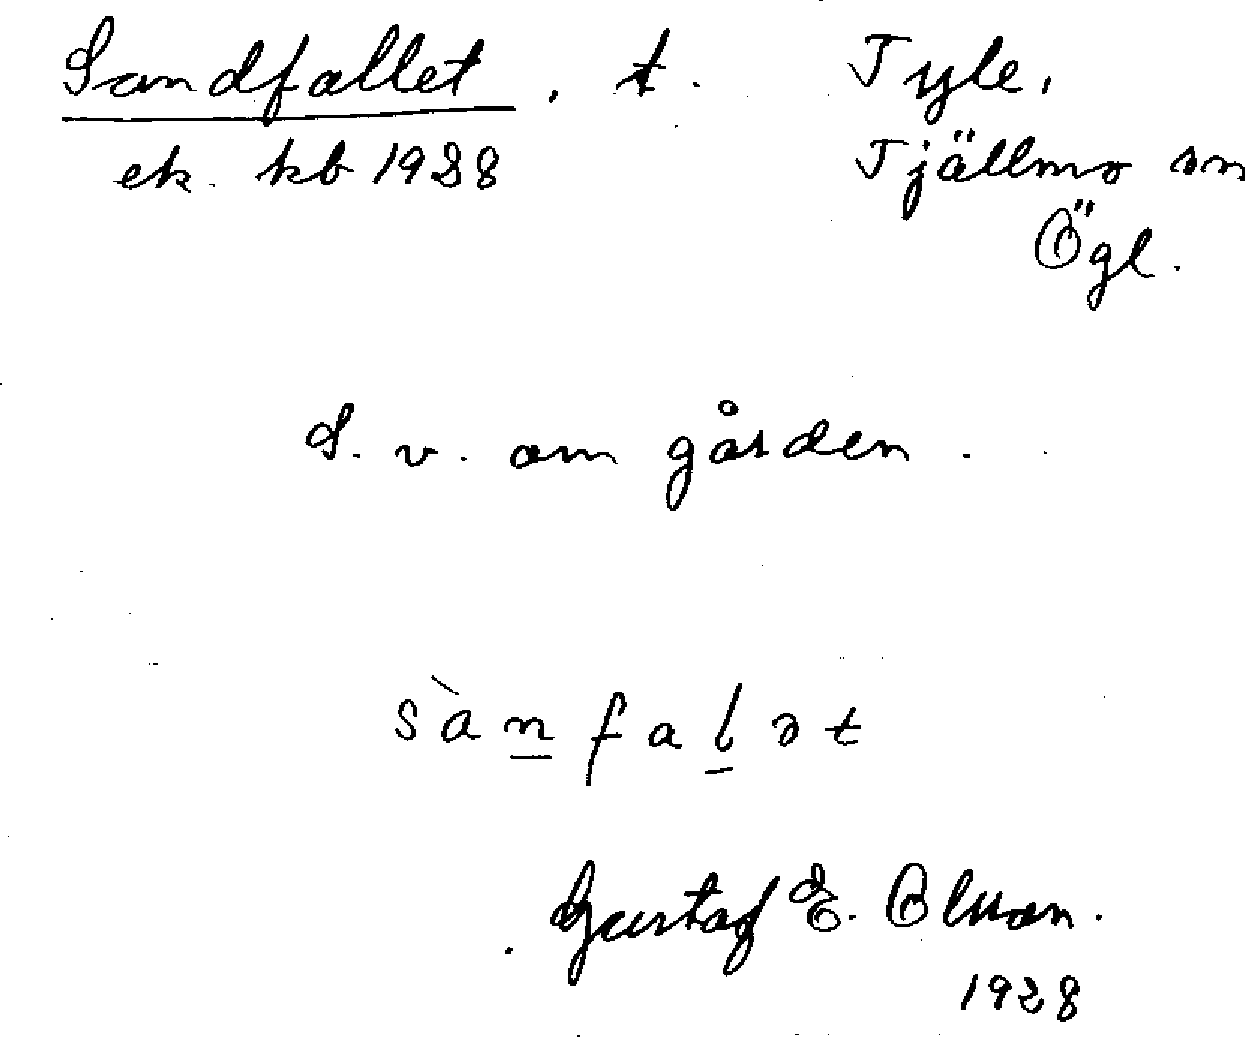 Sandfallet, t. Tyle,
ek. kb 1928 Tjällmo sn
Ögl.
S. v. om gården.
sànfalət
Gustaf E. Olsson.
1928